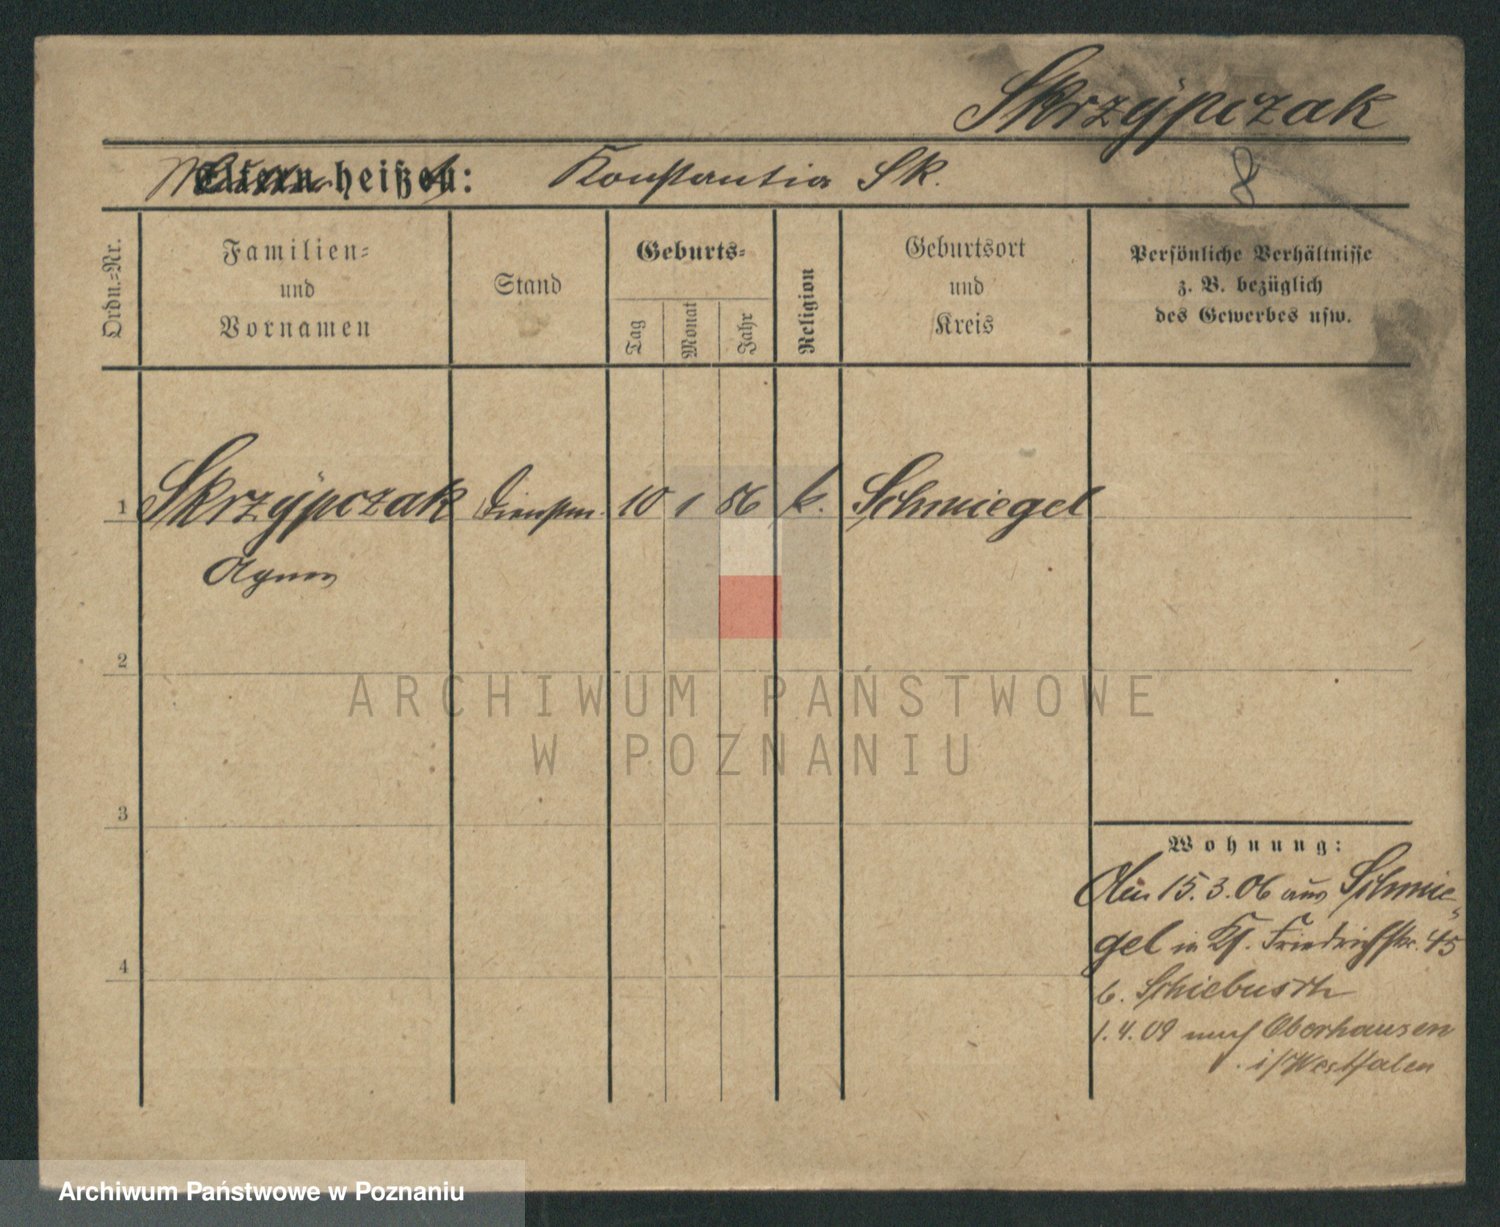 Skrzÿpczak
Mutter heißt: Konstantia Sk.
8
Ordn.-Nr.
Familien-
und
Vornamen
Stand
Geburts-
Tag
Monat
Jahr
Religion
Geburtsort
und
Kreis
Persönliche Verhältnisse
z. B. bezüglich
des Gewerbes usw.
1 Skrzÿpczak Dienstm. 10 1 86 k. Schmiegel
Agnes
2
ARCHIWUM PAŃSTWOWE
W POZNANIU
3
4
Wohnung:
15.3.06 aus Schmie-
gel in Friedrichstr. 45
b. Schiebusch
1.4.09 nach Oberhausen
i/Westfalen
Archiwum Państwowe w Poznaniu